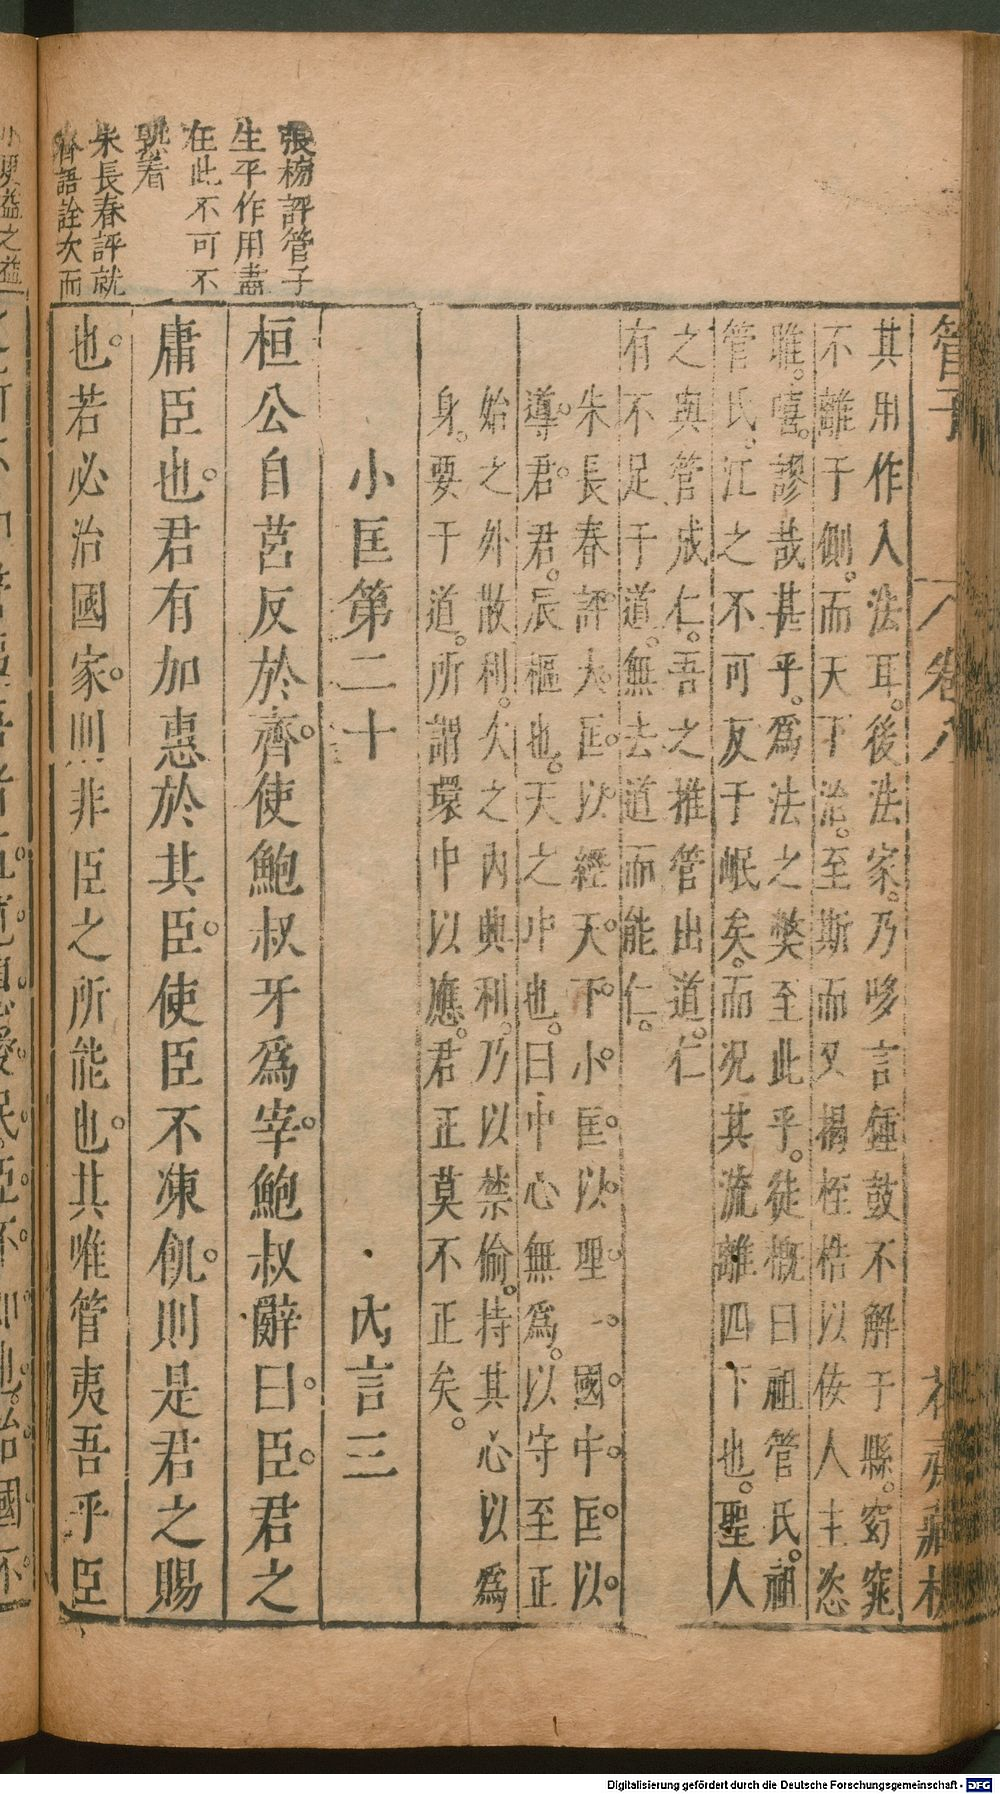 管子
卷八
其用作入法耳。後法家。乃哆言鍾鼓不解于縣。窈窕
不離于側。而天下治。至斯而又楬桎梏以佐人主恣
睢。嘻。謬哉甚乎。為法之獘至此乎。徒概曰祖管氏。祖
管氏。江之不可反于岷矣。而况其流離四下也。聖人
之與管成仁。吾之推管出道。仁
有不足于道。無去道而能仁。
朱長春評大匡以經天下。小匡以理一國中匡以
導君。君。辰樞也。天之中也。曰中心無為。以守至正
始之外散利。久之內典利。乃以禁偷。持其心以為
身。要于道。所謂環中以應。君正莫不正矣。
小匡第二十 內言三
桓公自莒反於齊。使鮑叔牙為宰。鮑叔辭曰。臣。君之
庸臣也。君有加惠於其臣。使臣不凍飢。則是君之賜
也。若必治國家。則非臣之所能也。其唯管夷吾乎臣
張榜評管子
生平作用盡
在此不可不
熟看
朱長春評就
齊語詮次而
Digitalisierung gefördert durch die Deutsche Forschungsgemeinschaft - DFG